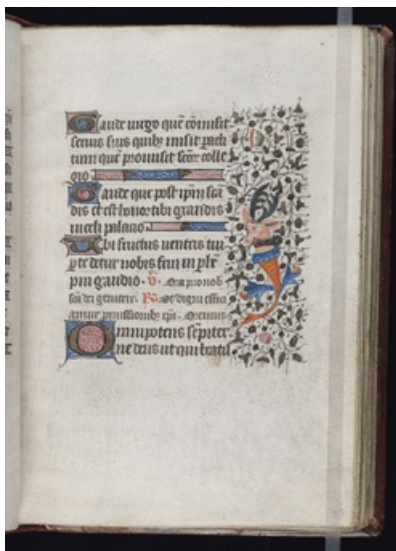 Gaude uirgo quē cōmisit
suis quibꝫ misit
tum quē promisit colle
gio
Gaude que post ipm sca
dis et est honor tibi grandis
in celi palacio
Ubi fructus uentris tui
p te detur nobis frui in
pni gaudio. V. Ora pro nob
sca dei genitrix. R. Ut digni effici
amur promissionibꝫ xpi. Oremus
Omnipotens sēpiter
ne deus ut qui